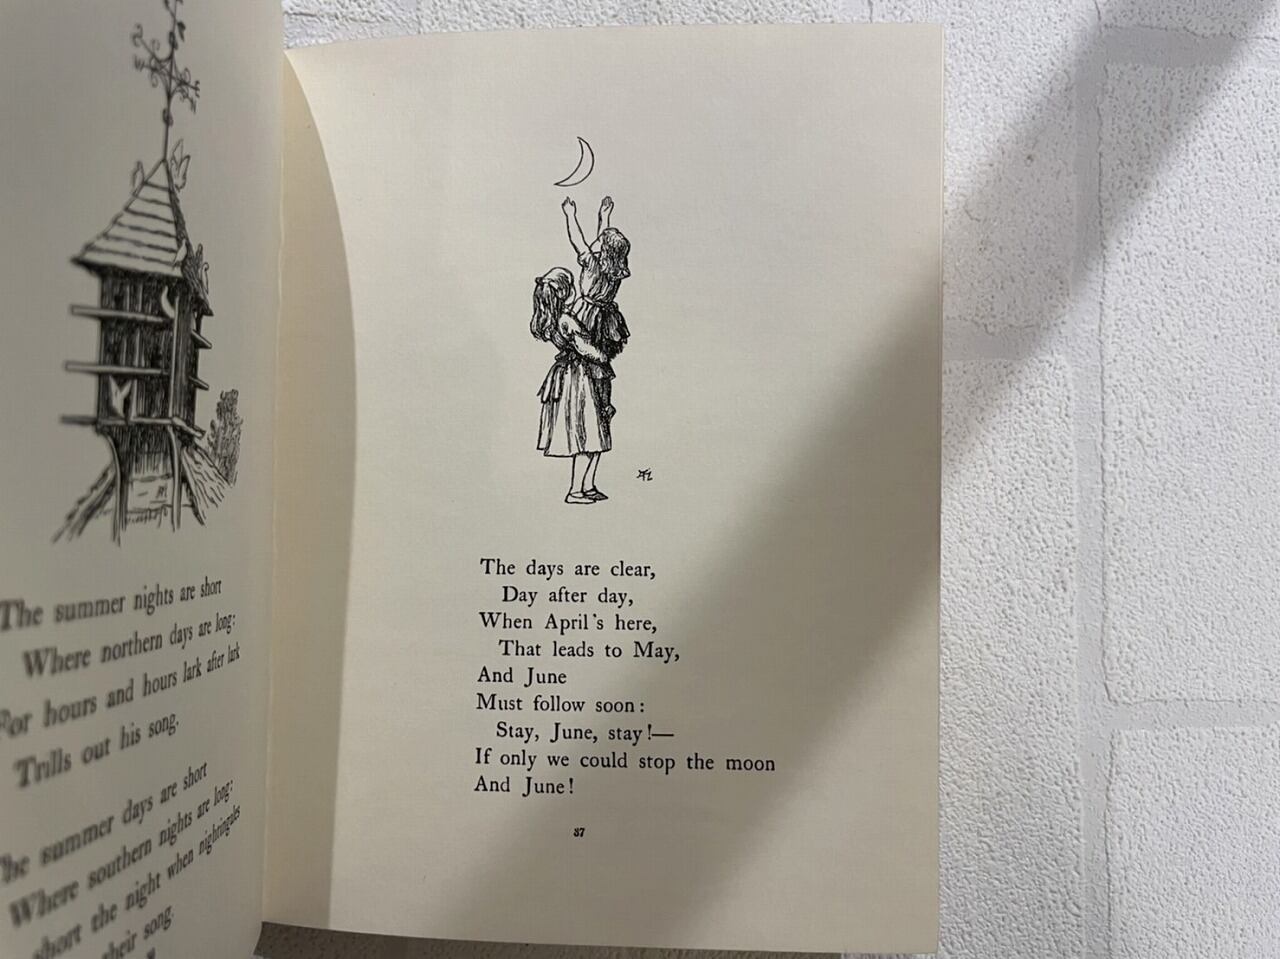 The summer nights are short
Where northern days are long:
For hours and hours lark after lark
Trills out his song.
The summer days are short
Where southern nights are long:
short the night when nightingales
their song.
The days are clear,
Day after day,
When April's here,
That leads to May,
And June
Must follow soon:
Stay, June, stay!—
If only we could stop the moon
And June!
37